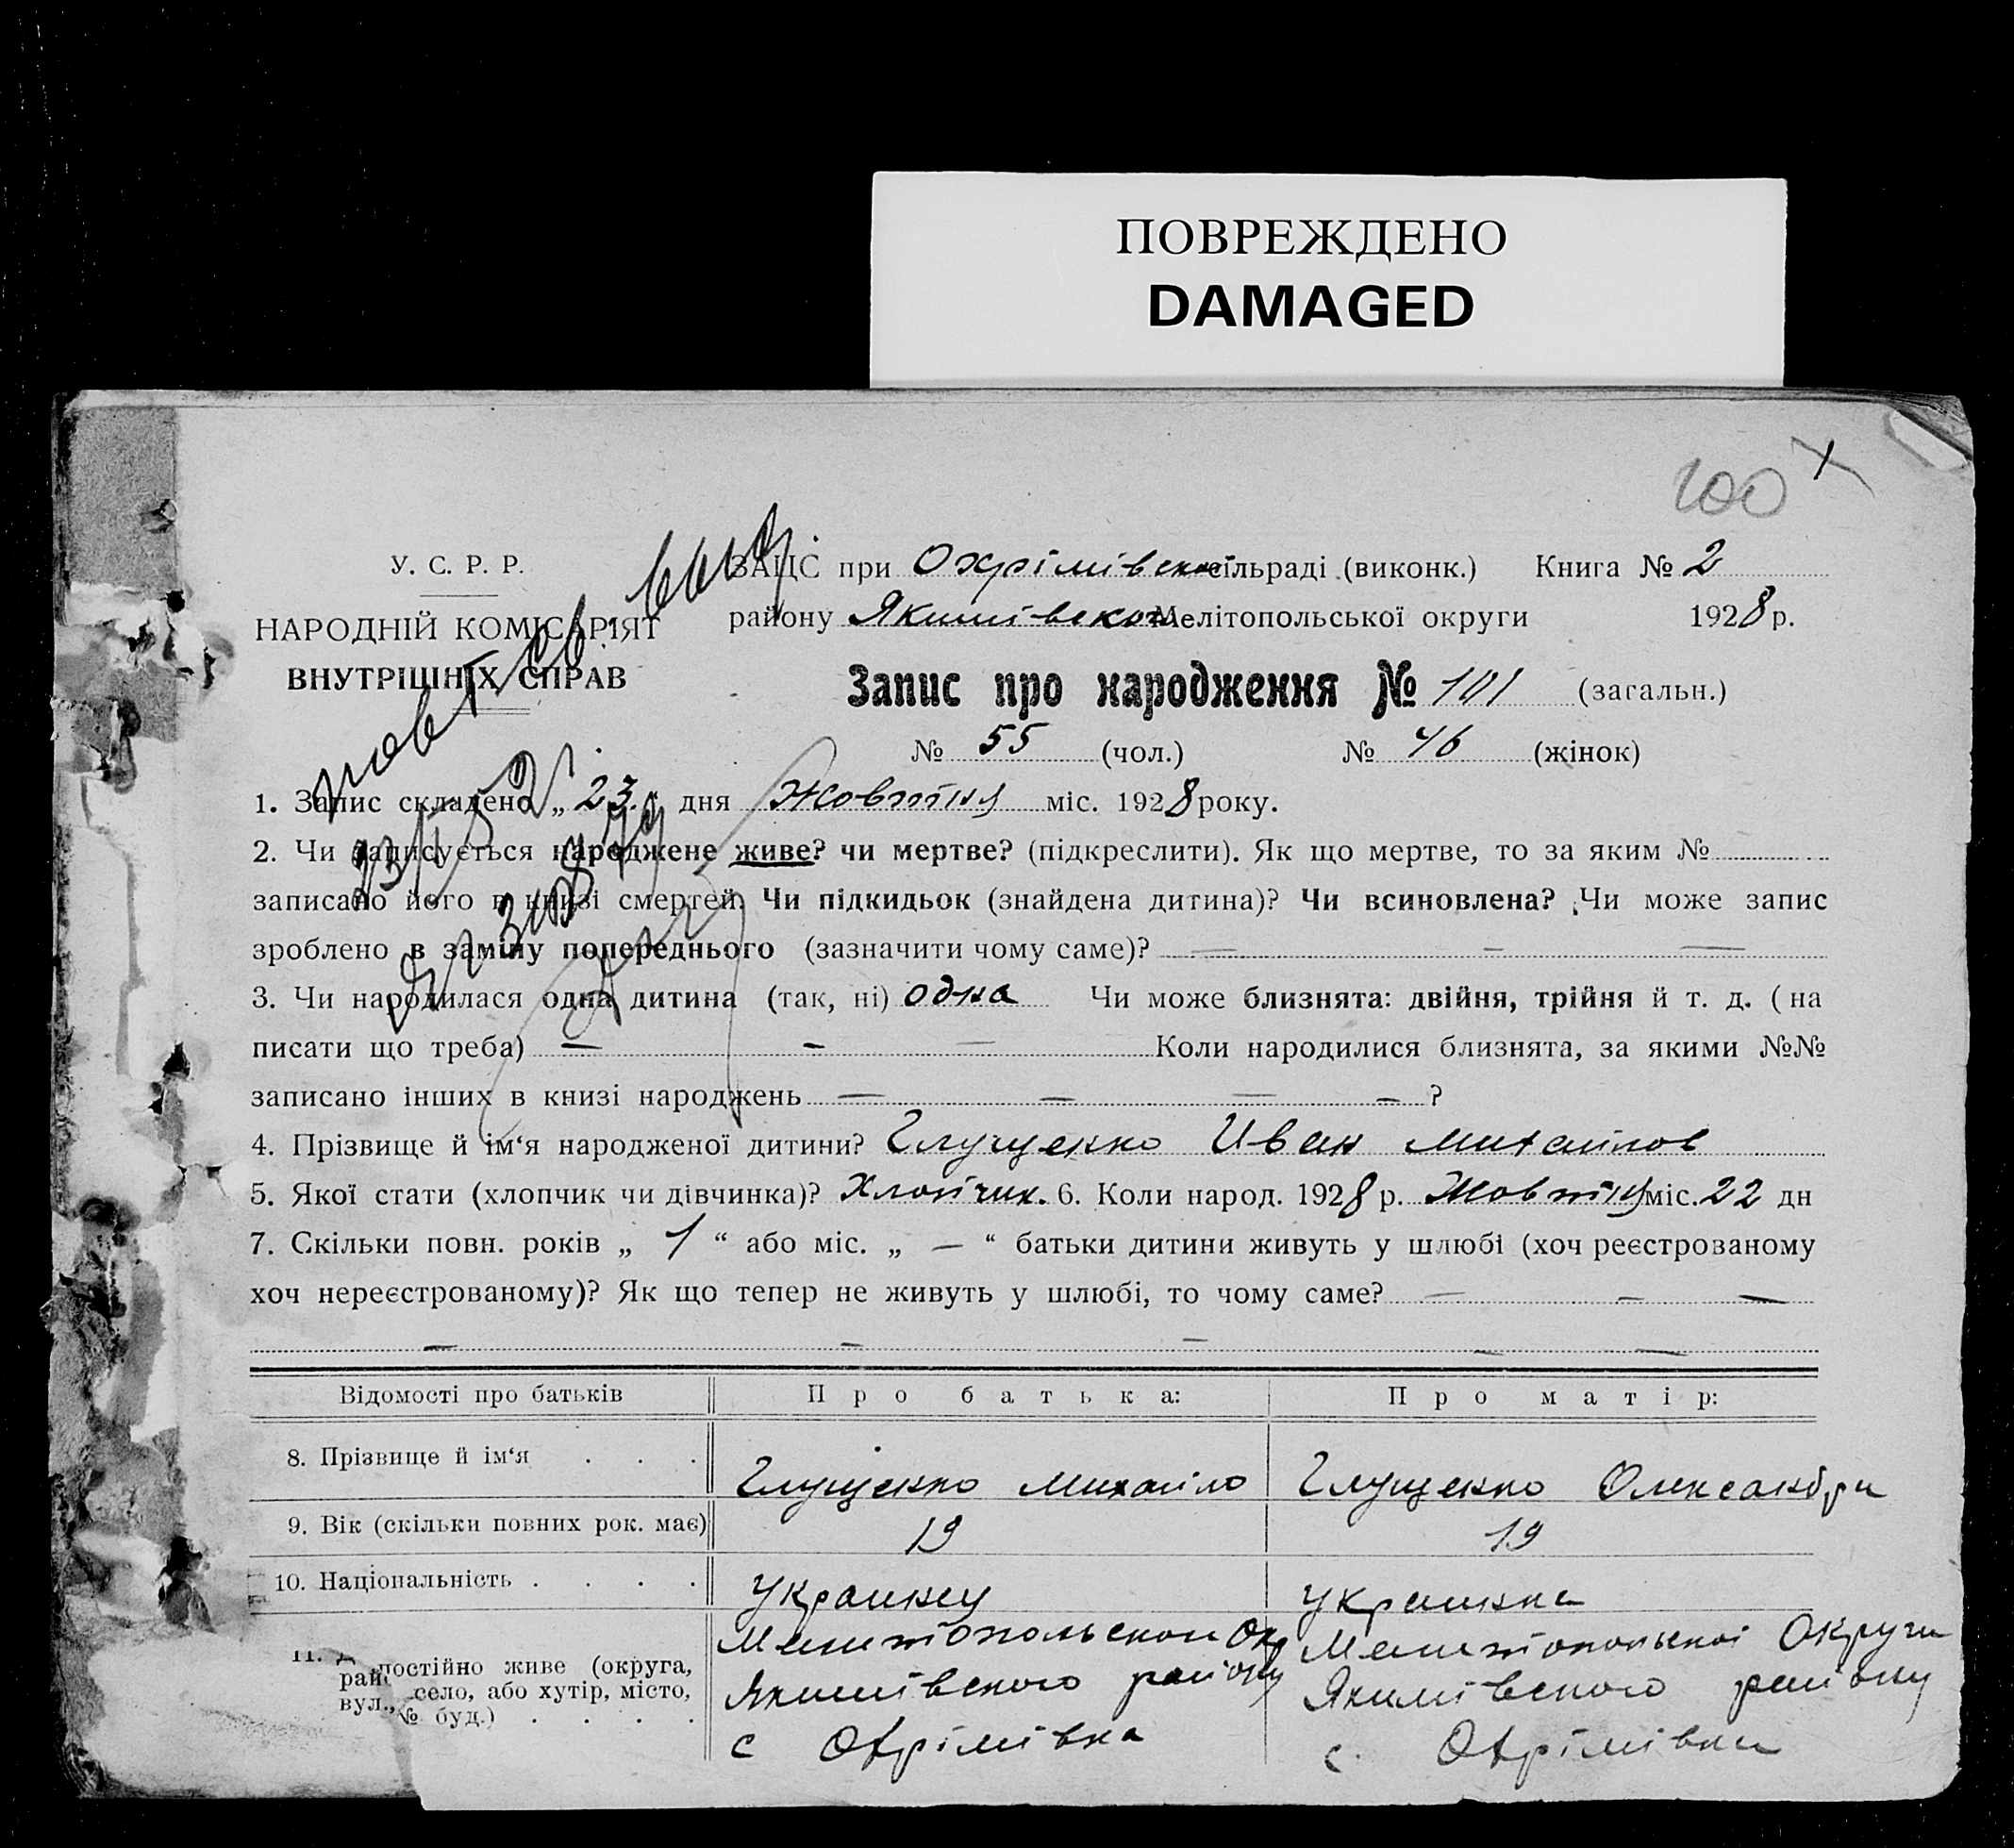 ПОВРЕЖДЕНО
DAMAGED
100
У. С. Р. Р.
НАРОДНІЙ КОМІСАРІЯТ
ВНУТРІШНІХ СПРАВ
ЗАЦС при Охрімівської сільраді (виконк.) Книга № 2
району Якимівского Мелітопольської округи 1928 р.
Запис про народження № 101 (загальн.)
№ 55 (чол.) № 46 (жінок)
1. Запис складено „ 23 " дня Жовтня міс. 1928 року.
2. Чи записується народжене живе? чи мертве? (підкреслити). Як що мертве, то за яким №
записано його в книзі смертей. Чи підкидьок (знайдена дитина)? Чи всиновлена? Чи може запис
зроблено в заміну попереднього (зазначити чому саме)? — — —
3. Чи народилася одна дитина (так, ні) одна Чи може близнята: двійня, трійня й т. д. (на
писати що треба) — — — Коли народилися близнята, за якими №№
записано інших в книзі народжень — — — — ?
4. Прізвище й ім‘я народженої дитини? Глущенко Иван Михайлов
5. Якої стати (хлопчик чи дівчинка)? Хлопчик. 6. Коли народ. 1928 р. Жовтня міс. 22 дн
7. Скільки повн. років „ 1 “ або міс. „ — “ батьки дитини живуть у шлюбі (хоч реєстрованому
хоч нереєстрованому)? Як що тепер не живуть у шлюбі, то чому саме? — — —
— — — — —
Відомості про батьків Про батька: Про матір:
8. Прізвище й ім‘я . . . Глущенко Михайло Глущенко Олександра
9. Вік (скільки повних рок. має) 19 19
10. Національність . . . . Украинец Украинка
11. постійно живе (округа, Мелитопольской Окр Мелитопольскої Округи
рай село, або хутір, місто, Якимівского району Якимівского району
вул., № буд.) . . . . с Охрімівка с. Охрімівки